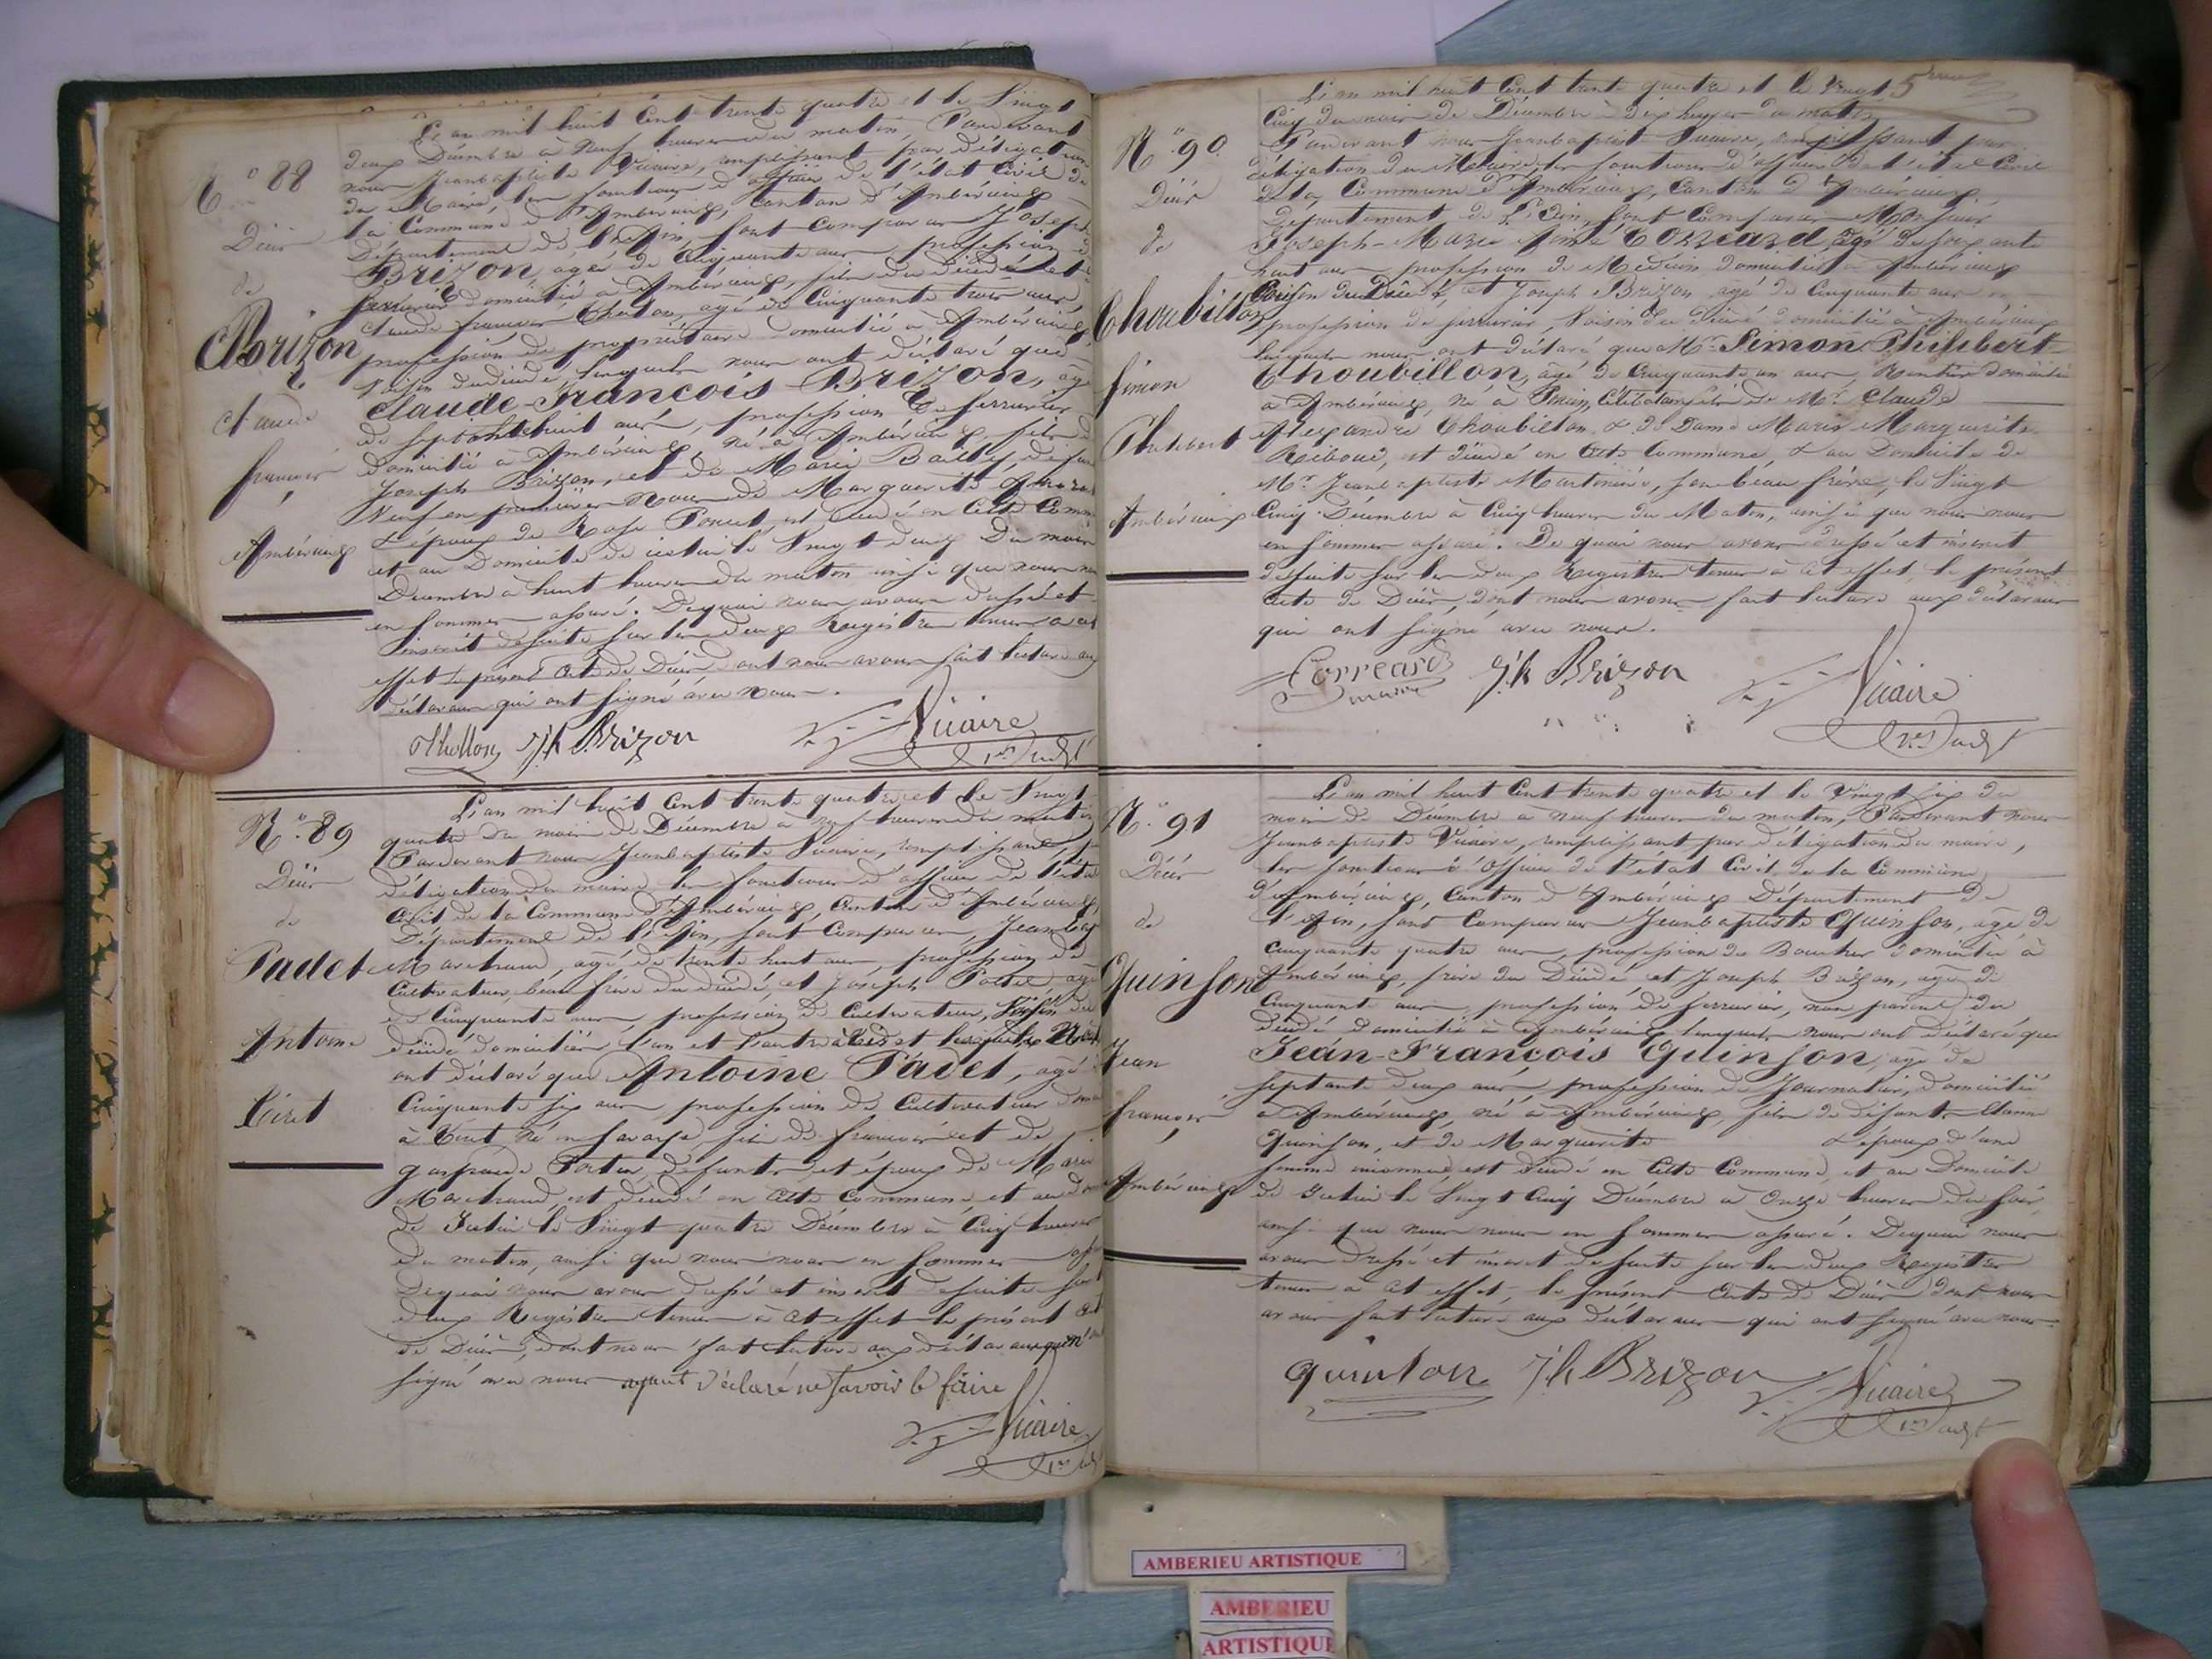 L'an mil huit Cent trente quatre et le Vingt
deux Décembre à Neuf heures du matin, Pardevant
nous Jeanbaptiste Vicaire, remplissant par délégation
du Maire, les fonctions d'officier de l'état Civil de
la Commune d'Ambérieux, Canton d'Ambérieux
Département de l'Ain, sont comparus Joseph
Brizon, agé de Cinquante ans, profession de
serrurier domicilié à Ambérieux, fils du décédé et
Claude françois agé de Cinquante trois ans,
profession de propriétaire domicilié à Ambérieux
Voisin dudécédé, lesquels nous ont déclaré que
Claude-François Brizon, agé
de septantehuit ans, profession de serrurier
domicilié à Ambérieux, né à Ambérieux, fils de
Joseph Brizon, et de Marie Bailly, défunts
Veuf en premières Noces de Marguerite
& époux de Rose Poncet est décédé en Cette Commune
et au Domicile de icelui le Vingt deux Du mois
Décembre à huit heures du matin ainsi que nous nous
en sommes assuré. Dequoi nous avons dressé et
inscrit desuite sur les deux Registres tenus à cet
effet le présent Acte de Décès dont nous avons fait lecture aux
déclarans qui ont signé avec Nous.
N° 88
Décès
de
Brizon
Claude
françois
Ambérieux
Jh Brizon
Vicaire
N° 89
Décès
de
Padet
Antoine
Tiret
L'an mil huit Cent trente quatre et le Vingt
quatre du mois de Décembre à neuf heures du matin
Pardevant nous Jeanbaptiste Vicaire, remplissant par
délégation du maire les fonctions d'officier de l'état
Civil de la Commune d'Ambérieux, Canton d'Ambérieux,
Département de l'Ain, sont comparus, Jean
Marchand, agé de trente huit ans, profession de
Cultivateur, beau frère du décédé, et Joseph agé
de Cinquante ans, profession de Cultivateur, Voisin du
décédé domiciliés l'un et l'autre à Tiret lesquels Nous
ont déclaré que Antoine Padet, agé
Cinquante six ans profession de Cultivateur
à Tiret, né en Savoye, fils de françois et de
défunts, et époux de Marie
Marchand, est décédé en Cette Commune, et au
de Icelui le Vingt quatre Décembre à Cinq heures
du matin, ainsi que nous nous en sommes
Dequoi nous avons dressé et inscrit desuite sur
deux Registres tenus à Cet effet le présent Acte
de Décès, dont nous fait lecture aux déclarans qui n'ont
signé avec nous ayant déclaré ne savoir le faire
Vicaire
L'an mil huit Cent trente quatre et le Vingt
Cinq du mois de Décembre à dix heures du matin
Pardevant nous Jeanbaptiste Vicaire, remplissant par
délégation du Maire, les fonctions d'officier de l'état Civil
de la Commune d'Ambérieux, Canton d'Ambérieux,
Département de L'Ain, sont Comparus Monsieur
Joseph-Marie Aimé Corréard agé de soixante
huit ans profession de Médecin domicilié à Ambérieux
Voisin du Décédé, et Joseph Brizon agé de Cinquante ans
profession de serrurier, Voisin du Décédé domicilié à Ambérieux
lesquels nous ont déclaré que Mr Simon Philibert
Choubillon, agé de Cinquante un ans, Rentier domicilié
à Ambérieux, né à fils de Mr Claude
Alexandre Choubillon, & de Dame Marie Marguerite
Reboud, est décédé en Cette Commune, & au Domicile de
Mr Jeanbaptiste Martinière, son beau frère, le Vingt
Cinq Décembre à Cinq heures du Matin, ainsi que nous nous
en sommes assuré. De quoi nous avons dressé et inscrit
desuite sur les deux Registres tenus à cet effet, le présent
Acte de Décès, dont nous avons fait lecture aux déclarans
qui ont signé avec nous.
N° 90
Décès
de
Choubillon
Simon
Philibert
Ambérieux
Correard
Jh Brizon
Vicaire
N° 91
Décès
de
Quinson
Jean
françois
Ambérieux
L'an mil huit Cent trente quatre et le Vingt six du
mois de Décembre à neuf heures du matin, Pardevant nous
Jeanbaptiste Vicaire, remplissant par délégation du maire,
les fonctions d'Officier de l'état Civil de la Commune
d'Ambérieux, Canton d'Ambérieux Département de
l'Ain, sont Comparus Jeanbaptiste Quinson, agé de
Cinquante quatre ans, profession de Boucher domicilié à
Ambérieux, frère du Décédé et Joseph Brizon, agé de
Cinquante ans profession de serrurier, non parent du
décédé domicilié à Ambérieux lesquels nous ont déclaré que
Jean-François Quinson, agé de
septante deux ans, profession de Journalier, domicilié
à Ambérieux, né à Ambérieux, fils de défunts
Quinson, et de Marguerite & époux d'une
femme est décédé en Cette Commune, et au Domicile
de Icelui le Vingt Cinq Décembre à Onze heures du soir,
ainsi que nous nous en sommes assuré. Dequoi nous
avons dressé et inscrit desuite sur les deux Registres
tenus à Cet effet, le présent Acte de Décès dont nous
avons fait lecture aux déclarans qui ont signé avec nous
quinson
Jh Brizon
Vicaire
AMBERIEU ARTISTIQUE
AMBERIEU
ARTISTIQUE